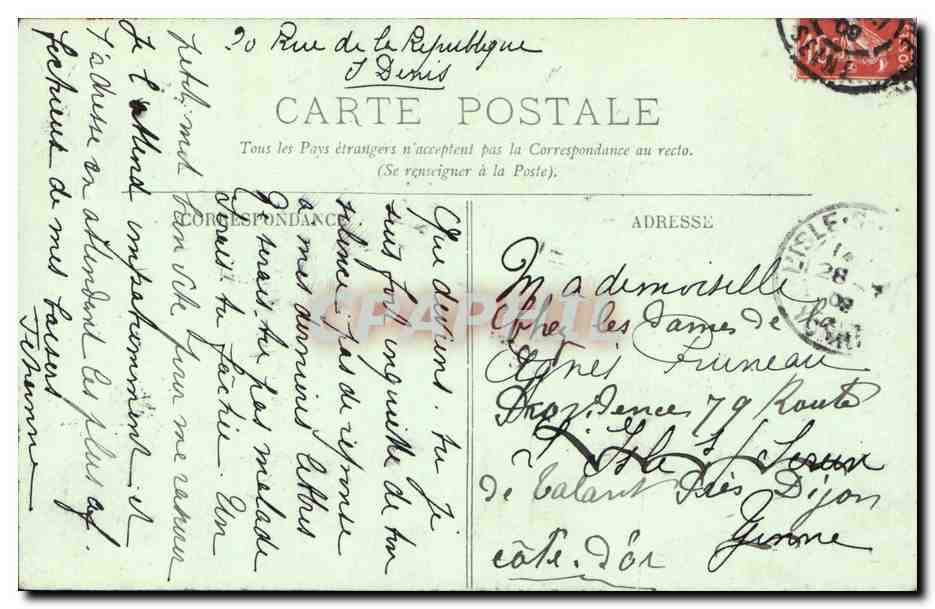 20 Rue de la République
S Denis
CARTE POSTALE
Tous les Pays étrangers n'acceptent pas la Correspondance au recto.
(Se renseigner à la Poste).
CORRESPONDANCE
ADRESSE
Que deviens-tu je
suis fort inquiète de ton
silence, pas de réponse
a mes dernières lettres
Ne serais tu pas malade
Serais tu fachée. Un
petit mot bien vite pour me rassurer
Je l'attend impatiemment et
t'adresse en attendant les plus aff
ectueux de mes baisers
Mademoiselle
chez les Dames de la
Agnès Pruneau
Providence 79 Route
L'Isle s/ Serein
de Talant Près Dijon
Yonne
côte-d'or
L'ISLE-S
28
09
CPAPHIL